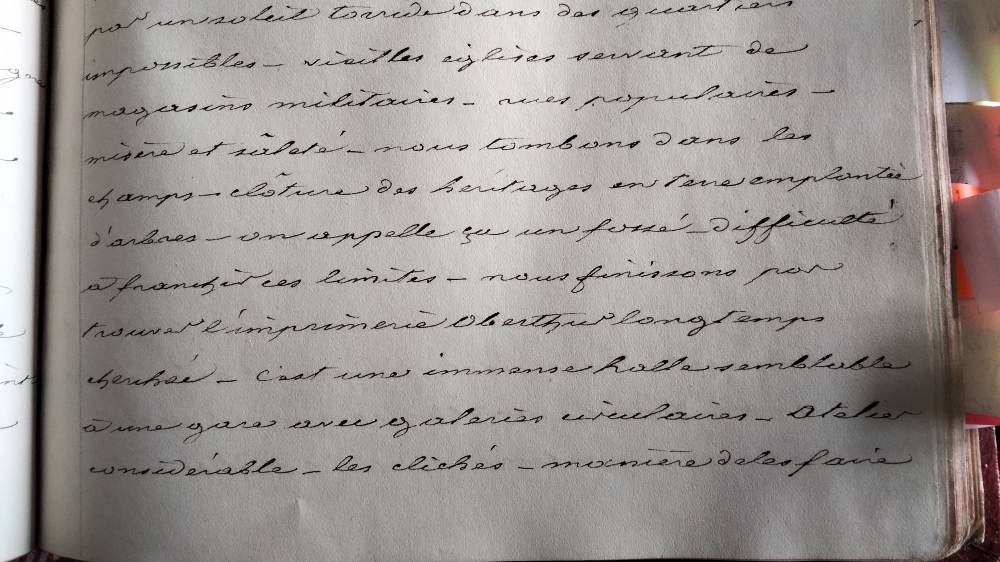 par un soleil torride dans des quartiers
impossibles – vieilles églises servant de
magasins militaires – rues populaires –
misère et sâleté – nous tombons dans les
champs – clôture des héritages en terre emplantée
d'arbres – on appelle ça un fossé – difficulté
à franchir ces limites – nous finissons par
trouver l'imprimerie Oberthur longtemps
cherchée – c'est une immense halle semblable
à une gare avec galeries circulaires – Atelier
considérable – les clichés – manière de les faire